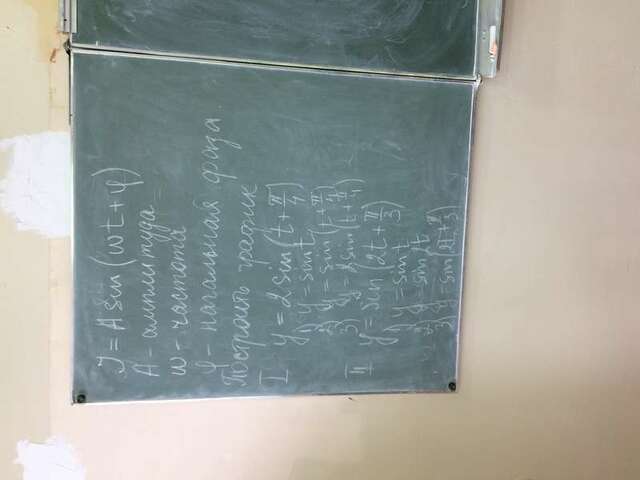 J = A sin (wt + φ)
A - амплитуда
w - частота
φ - начальная фаза
Построить график
I y = 2 sin (t + π/4)
1) y = sin t
2) y = sin (t + π/4)
3) y = 2 sin (t + π/4)
II y = sin (2t + π/3)
1) y = sin t
2) y = sin 2t
3) y = sin (2t + π/3)